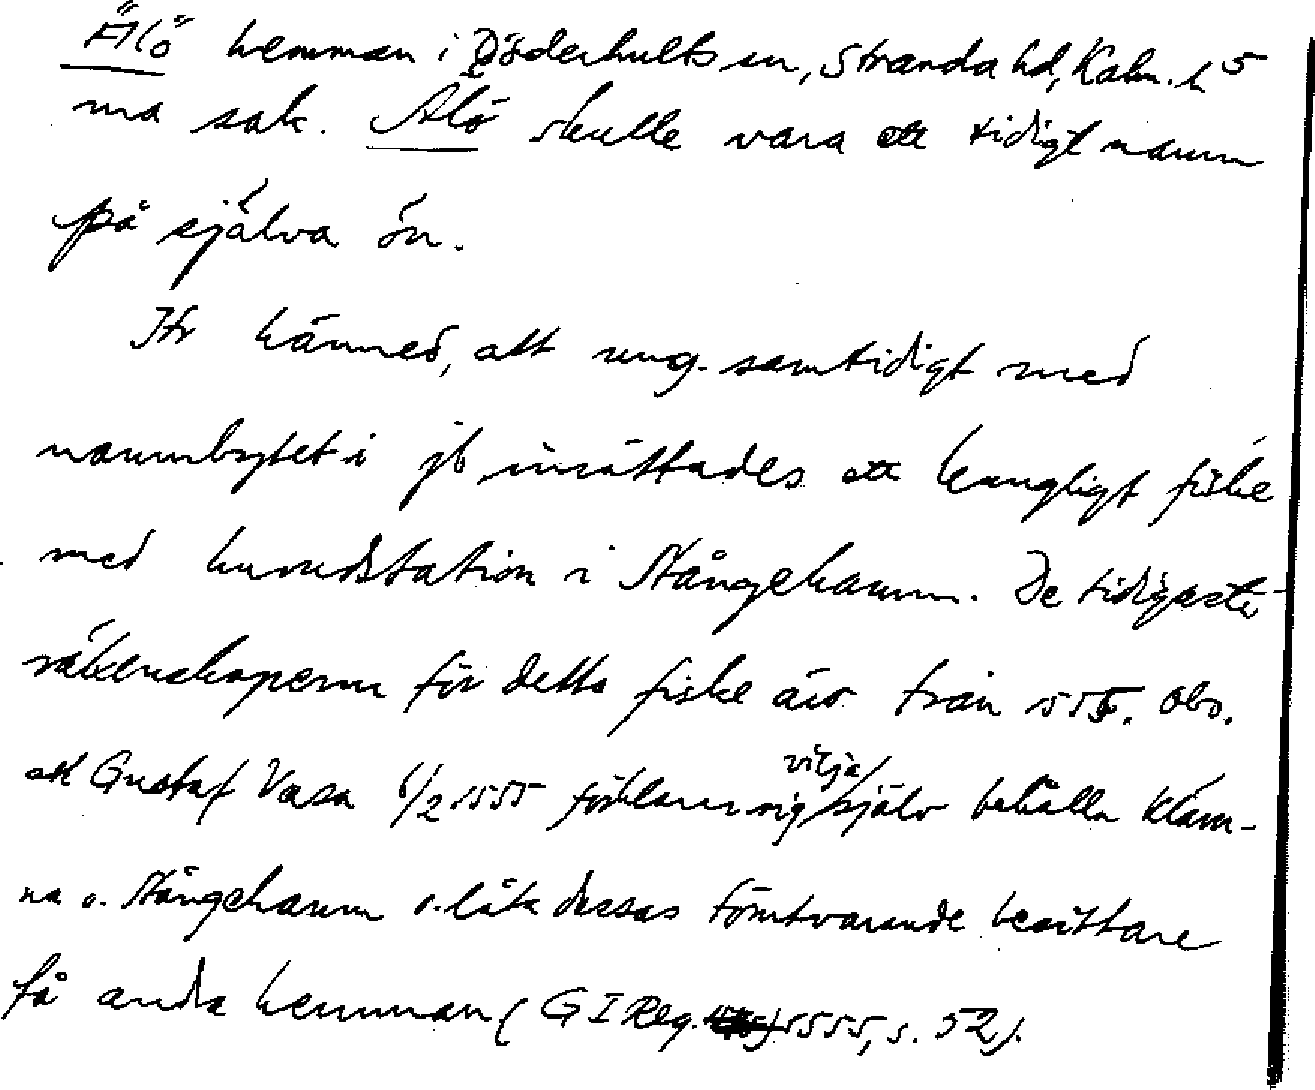 Älö hemman i Döderhults sn, Stranda hd, Kalm. l 5
ma sak. Alö skulle vara ett tidigt namn
på själva ön.
Jfr härmed, att ung. samtidigt med
namnbytet i jb inrättades ett kungligt fiske
med huvudstation i Stångehamn. De tidigaste
räkenskaperna för detta fiske är från 1555. Obs.
att Gustaf Vasa 6/2 1555 förklarar sig vilja själv behålla Kläm-
na o. Stångehamn o. låta dessas förutvarande besittare
få andra hemman (G I Reg. 1555, s. 52).